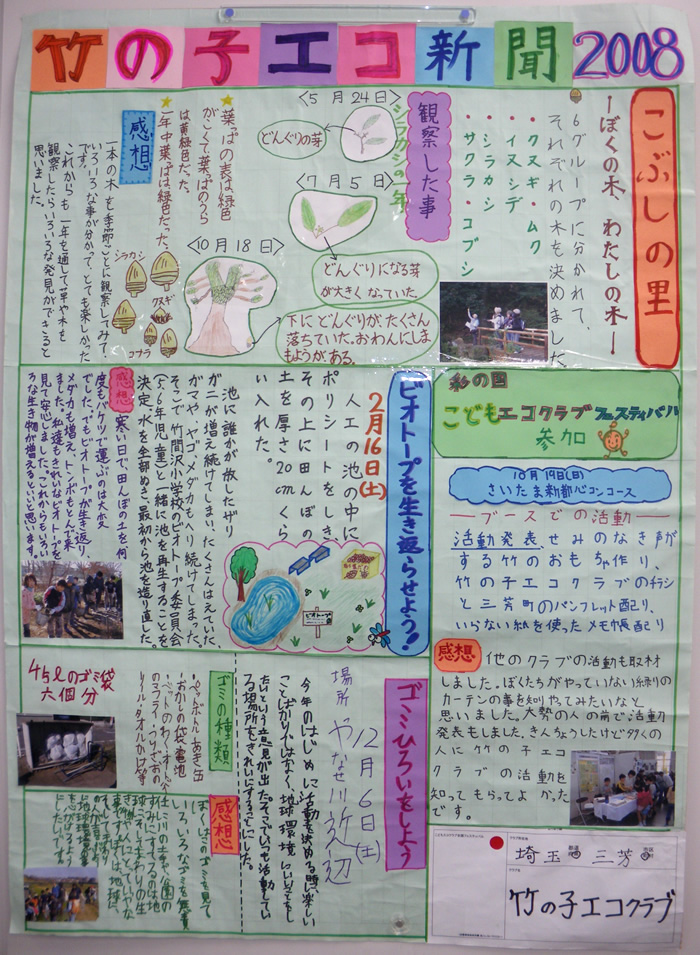 竹の子エコ新聞2008
こぶしの里
ーぼくの木、わたしの木ー
6グループに分かれて、
それぞれの木を決めました
・クヌギ・ムク
・イヌシデ
・シラカシ
・サクラ・コブシ
観察した事
シラカシの一年
〈5月24日〉
どんぐりの芽
〈7月5日〉
どんぐりになる芽
が大きくなっていた。
〈10月18日〉
下にどんぐりが、たくさん
落ちていた。おわんにしま
もようが、ある。
葉っぱの表は緑色
がこくて葉っぱのうら
は黄緑色だった。
一年中葉っぱは緑色だった。
感想
一本の木を季節ごとに観察してみて、
いろいろな事が分かって、とても楽しかった
です。
これからも一年を通して草や木を
観察したらいろいろな発見ができると
思いました。
シラカシ
クヌギ
コナラ
彩の国
こどもエコクラブフェスティバル
参加
10月19日(日)
さいたま新都心コンコース
ーブースでの活動ー
活動発表、せみのなき声が
する竹のおもちゃ作り、
竹の子エコクラブのチラシ
と三芳町のパンフレット配り、
いらない紙を使ったメモ帳配り
感想
他のクラブの活動も取材
しました。ぼくたちがやっていない緑の
カーテンの事を知りやってみたいなと
思いました。大勢の人の前で活動
発表もしました。きんちょうしたけど多くの
人に竹の子エコ
クラブの活動を
知ってもらってよかった
です。
ビオトープを生き返らせよう!
2月16日(土)
人工の池の中に
ポリシートをしき、
その上に田んぼの
土を厚さ20cmくら
い入れた。
ビオトープの
池に誰かが放したザリ
ガニが増え続けてしまい、たくさんはえていた
ガマや、ヤゴ、メダカもへり続けてしまった。
そこで竹間沢小学校のビオトープ委員会
(5.6年児童)と一緒に池を再生することを
決定。水を全部ぬき、最初から池を造り直した。
感想
寒い日で、田んぼの土を何
度もバケツで運ぶのは大変
でした。でもビオトープが生き返り、
メダカも増え、トンボも飛んで来
ました。私達もきれいなビオトープを
見て安心しました。これからもいろい
ろな生き物が増えるといいと思います。
ゴミひろいをしよう
12月6日(土)
場所 やなせ川近辺
今年のはじめに活動を決める時に楽しい
ことばかりではなく、地球環境にいいことをし
たいという意見が出た。そこでいつも活動してい
る場所をきれいにする事にした。
ゴミの種類
・ペットボトル・あき缶
・おかしの袋・電池
45ℓのゴミ袋
六個分
感想
埼玉 都道府県 三芳
竹の子エコクラブ